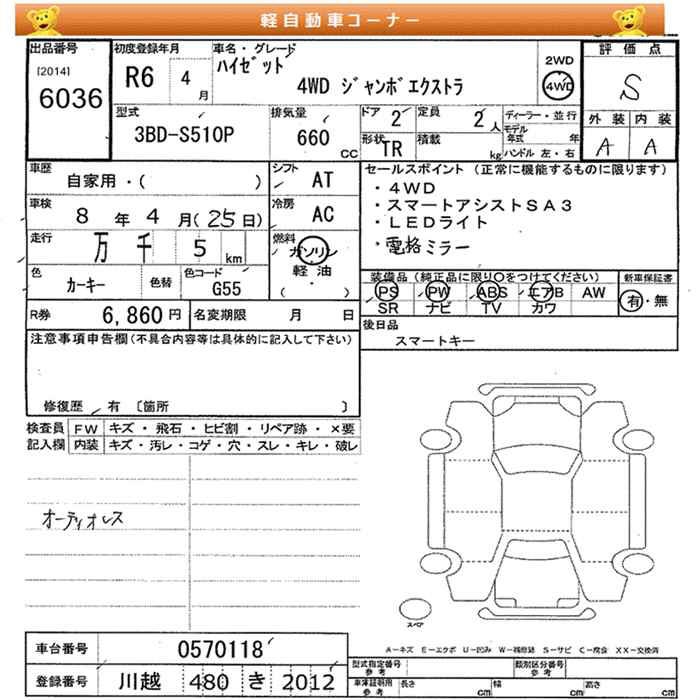 軽自動車コーナー
出品番号
[2014]
6036
初度登録年月
R6 4 月
車名・グレード
ハイゼット
4WD ジャンボエクストラ
2WD
4WD
評価点
S
外装 内装
A A
型式
3BD-S510P
排気量
660 CC
ドア 2
定員 2 人
形状 TR
積載 kg
ディーラー・並行
モデル年式 年
ハンドル 左・右
車歴
自家用・( )
シフト AT
車検 8 年 4 月(25日)
冷房 AC
走行 万 千 5 km
燃料
ガソリン
軽油
( ・ )
色 カーキー 色替
色コード G55
R券 6,860 円 名変期限 月 日
セールスポイント (正常に機能するものに限ります)
・4WD
・スマートアシストSA3
・LEDライト
・電格ミラー
装備品 (純正品に限り〇をつけてください) 新車保証書
PS PW ABS エアB AW
SR ナビ TV カワ
有・無
後日品
スマートキー
注意事項申告欄 (不具合内容等は具体的に記入して下さい)
修復歴 有 〔箇所 〕
検査員 FW キズ・飛石・ヒビ割・リペア跡・×要
記入欄 内装 キズ・汚レ・コゲ・穴・スレ・キレ・破レ
オーディオレス
スペア
A-キズ E-エクボ U-凹み W-補修跡 S-サビ C-腐食 XX-交換済
車台番号 0570118
登録番号 川越 480 き 2012
型式指定番号 参考
類別区分番号 参考
車庫証明用 参考
長さ cm 幅 cm 高さ cm